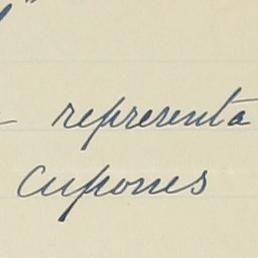 representa
cupones